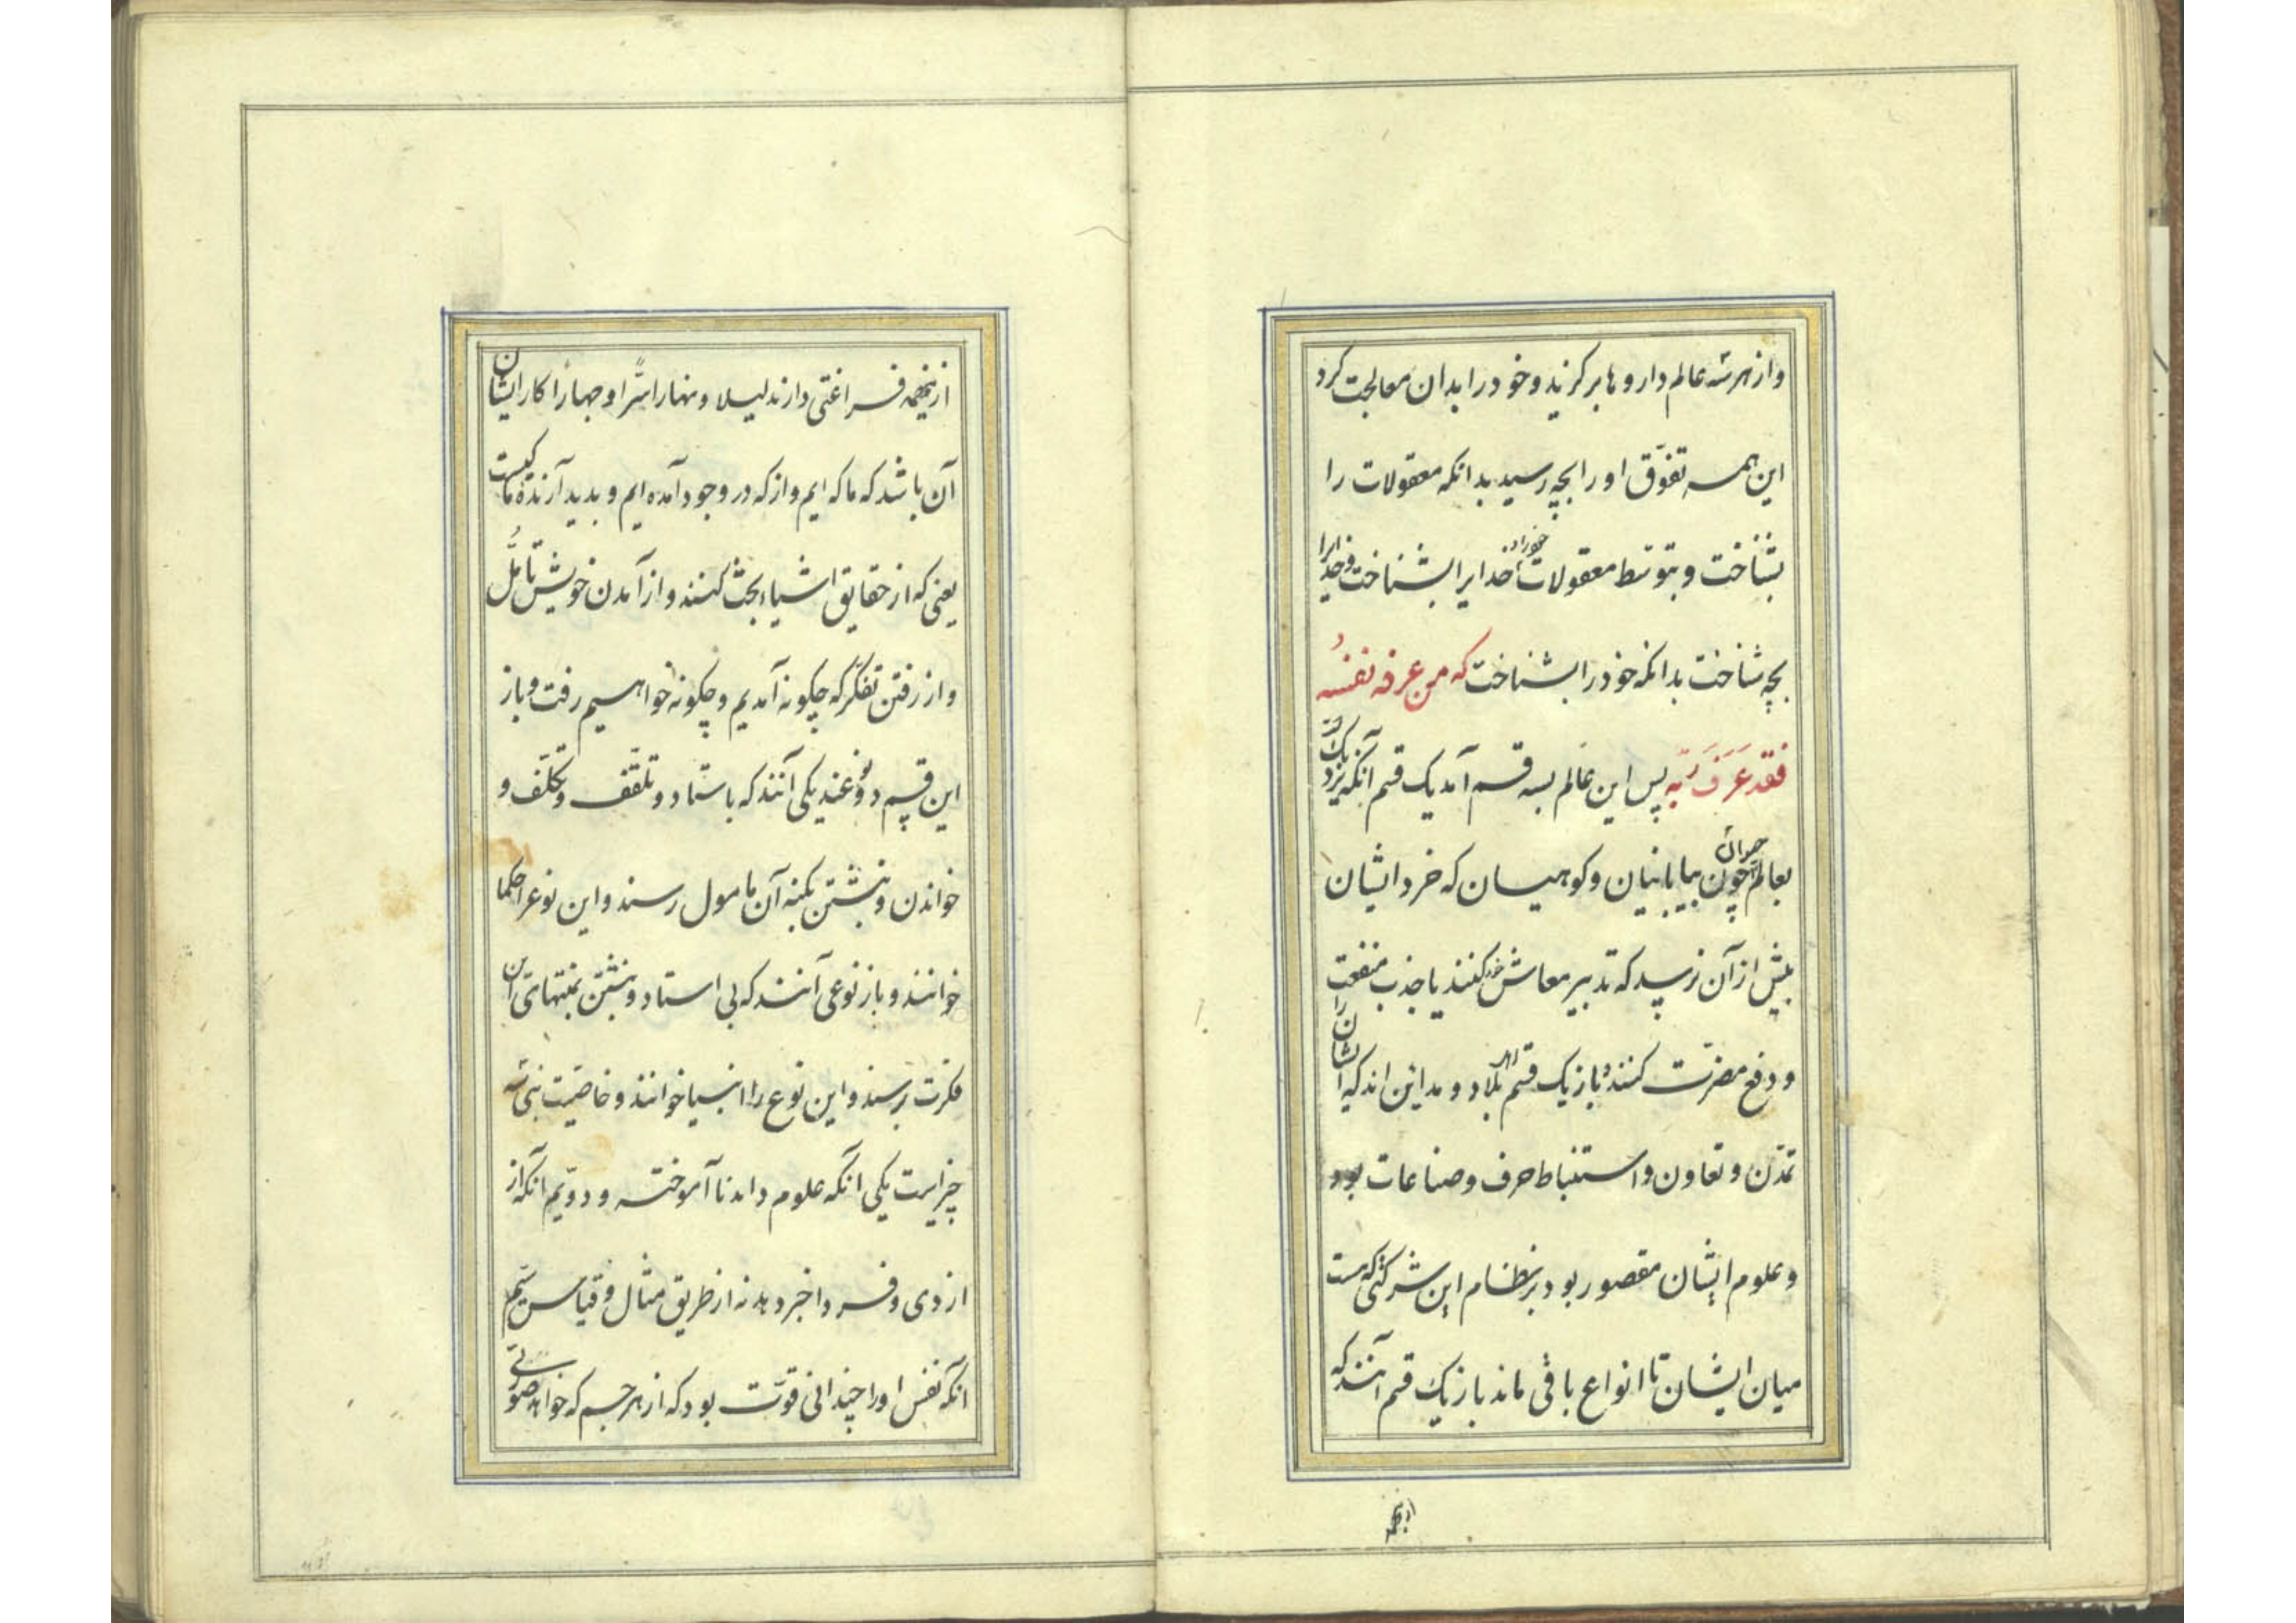 و از هر سه عالم داروها برگزید و خود را بدان معالجت کرد
این همه تفوّق او را بچه رسید بدانکه معقولات را
بشناخت و بتوسّط معقولات خدایرا بشناخت و خدایرا
بچه شناخت بدانکه خود را بشناخت که من عرف نفسه
فقد عَرَفَ رَبّه پس این عالم بسه قسم آمد یک قسم آنکه نزدیک
بعالم حیوان چون بیابانیان و کوهیان که خرد ایشان
بیش از آن نرسید که تدبیر معاش خود کنند یا جذب منفعت
و دفع مضرّت کنند و باز یک قسم اهل بلاد و مداین اند که ایشان را
تمدّن و تعاون و استنباط حرف و صناعات بود
و علوم ایشان مقصور بود بر نظام این شرکتی که هست
میان ایشان تا انواع باقی ماند باز یک قسم آنند که
ازینهمه
ازینهمه فراغتی دارند لیلا و نهارا سرّا و جهارا کار ایشان
آن باشد که ما که ایم و از که در وجود آمده ایم و بدید آرنده ما کیست
یعنی که از حقایق اشیاء بحث کنند و از آمدن خویش تأمّل
و از رفتن تفکّر که چگونه آمدیم و چگونه خواهیم رفت و باز
این قسم دو نوعند یکی آنند که باستاد و تلقّف و تکلّف و
خواندن و نبشتن بکنه آن مامول رسند و این نوع را حکما
خوانند و باز نوعی آنند که بی استاد و نبشتن بمنتهای این
فکرت برسند و این نوع را انبیا خوانند و خاصیّت نبی سه
چیز است یکی آنکه علوم داند ناآموخته و دویّم آنکه از
از دی و فردا خبر دهد نه از طریق مثال و قیاس سیّم
آنکه نفس او را چندانی قوّت بود که از هر جسم که خواهد صورتی